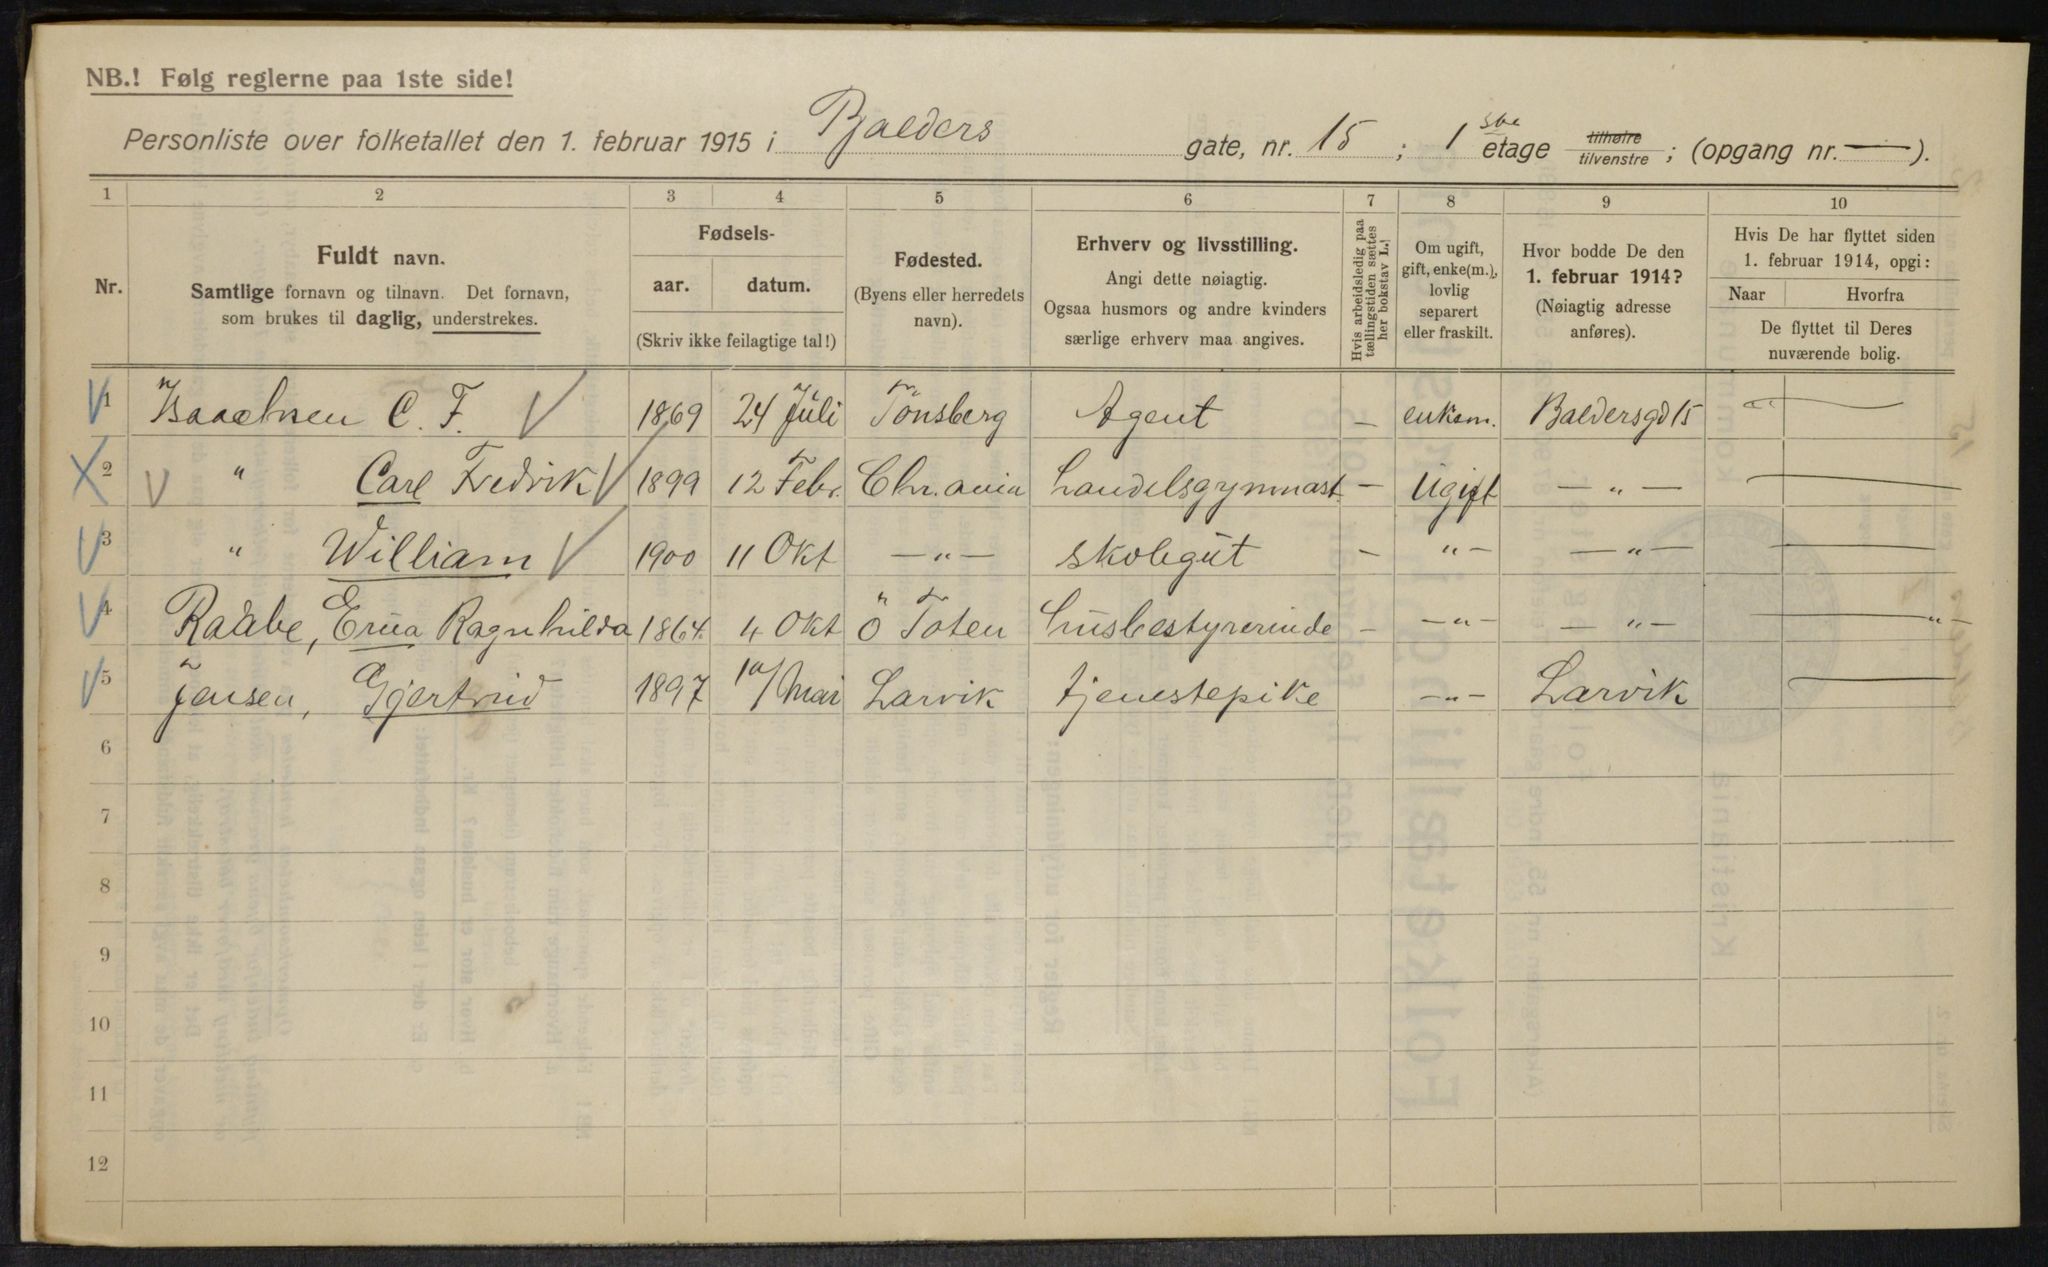 NB.! Følg reglerne paa 1ste side!
Personliste over folketallet den 1. februar 1915 i Balders gate, nr. 15 ; 1 ste etage tilhøire tilvenstre ; (opgang nr. — ).
1 2 3 4 5 6 7 8 9 10
Nr.
Fuldt navn.
Samtlige fornavn og tilnavn. Det fornavn,
som brukes til daglig, understrekes.
Fødsels-
aar. datum.
(Skriv ikke feilagtige tal!)
Fødested.
(Byens eller herredets
navn).
Erhverv og livsstilling.
Angi dette nøiagtig.
Ogsaa husmors og andre kvinders
særlige erhverv maa angives.
Hvis arbeidsledig paa
tællingstiden sættes
her bokstav L.!
Om ugift,
gift, enke(m.),
lovlig
separert
eller fraskilt.
Hvor bodde De den
1. februar 1914?
(Nøiagtig adresse
anføres).
Hvis De har flyttet siden
1. februar 1914, opgi:
Naar Hvorfra
De flyttet til Deres
nuværende bolig.
1 Isaachsen C. F. 1869 24 Juli Tönsberg Agent — enkem. Baldersgd 15 —
2 " Carl Fredrik 1899 12 Febr. Chr.ania Handelsgymnast. — Ugift — " — —
3 " William 1900 11 Okt — " — skolegut — " — — " — —
4 Raabe, Erna Ragnhilda 1864 4 Okt ö Toten Husbestyrerinde — — " — — " — — " —
5 Jensen, Gjertrud 1897 10/ Mai Larvik tjenestepike — " — Larvik —
6
7
8
9
10
11
12